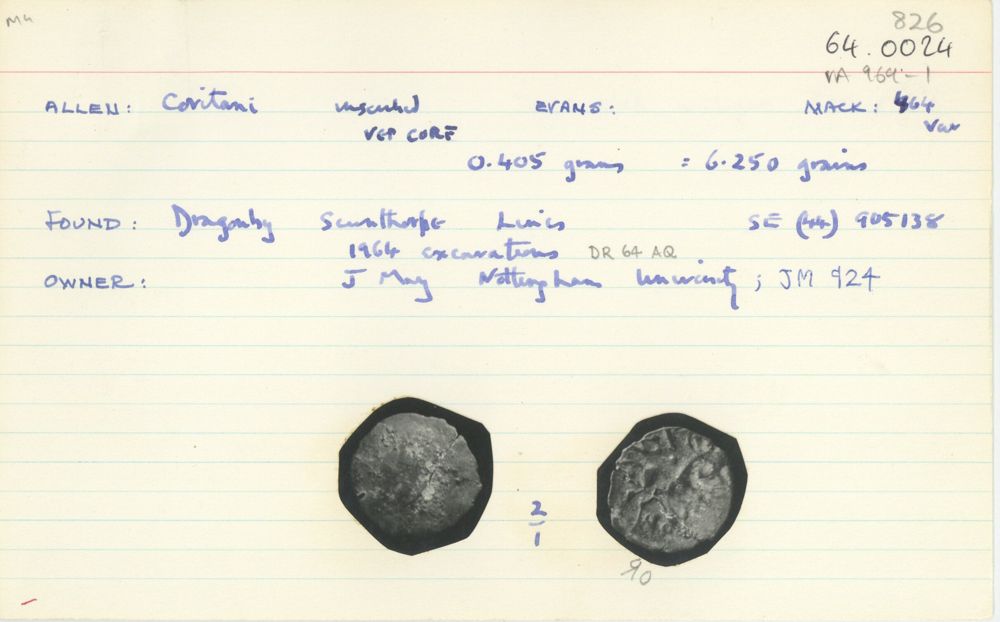 M4
826
64.0024
VA 964-1
ALLEN: Coritani inscribed EVANS: MACK: 464
VEP CORF var
0.405 grams = 6.250 grains
FOUND: Dragonby Scunthorpe Lincs SE (44) 905138
1964 excavations DR 64 AQ
OWNER: J May Nottingham University; JM 924
2
1
90